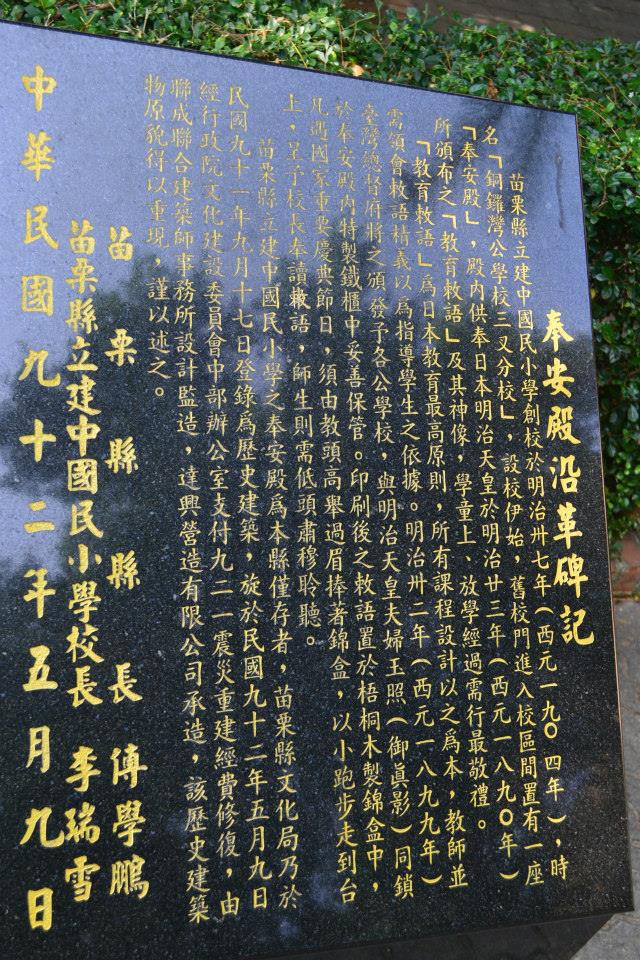 奉安殿沿革碑記
苗栗縣立建中國民小學創校於明治卅七年（西元一九〇四年），時
名「銅鑼灣公學校三叉分校」，設校伊始，舊校門進入校區間置有一座
「奉安殿」，殿內供奉日本明治天皇於明治廿三年（西元一八九〇年）
所頒布之「教育敕語」及其神像，學童上、放學經過需行最敬禮。
「教育敕語」為日本教育最高原則，所有課程設計以之為本，教師並
需領會敕語精義以為指導學生之依據。明治卅二年（西元一八九九年）
臺灣總督府將之頒發予各公學校，與明治天皇夫婦玉照（御眞影）同鎖
於奉安殿內特製鐵櫃中妥善保管。印刷後之敕語置於梧桐木製錦盒中，
凡遇國家重要慶典節日，須由教頭高舉過眉捧著錦盒，以小跑步走到台
上，呈予校長奉讀敕語，師生則需低頭肅穆聆聽。
苗栗縣立建中國民小學之奉安殿為本縣僅存者，苗栗縣文化局乃於
民國九十一年九月十七日登錄為歷史建築，旋於民國九十二年五月九日
經行政院文化建設委員會中部辦公室支付九二一震災重建經費修復，由
聯成聯合建築師事務所設計監造，達興營造有限公司承造，該歷史建築
物原貌得以重現，謹以述之。
苗栗縣縣長 傅學鵬
苗栗縣立建中國民小學校長 李瑞雪
中華民國九十二年五月九日